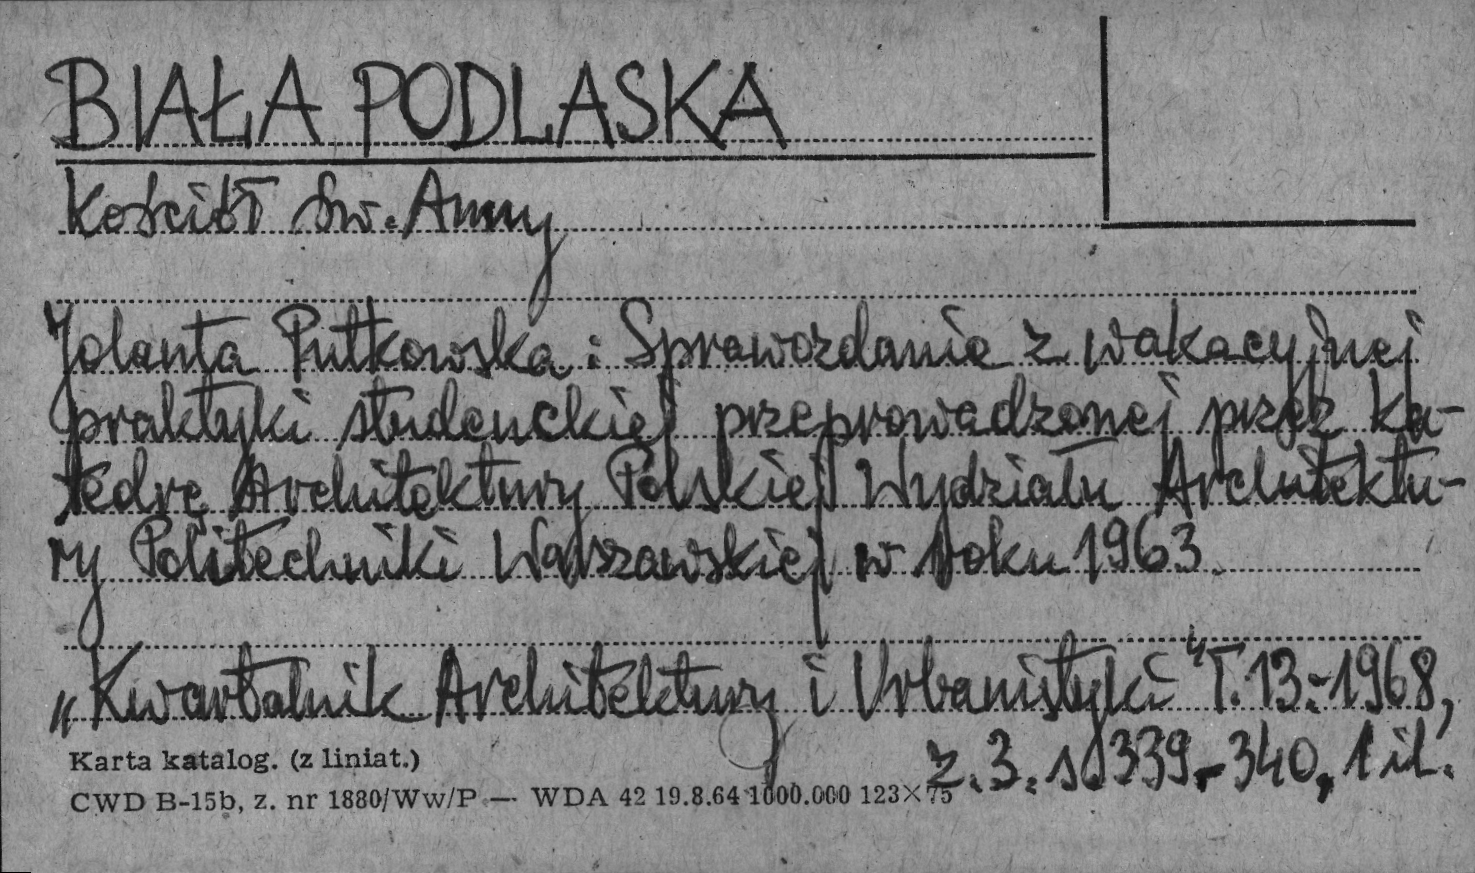 BIAŁA PODLASKA
Kościół św. Anny
Jolanta Putkowska: Sprawozdanie z wakacyjnej
praktyki studenckiej przeprowadzonej przez Ka-
tedrę Architektury Polskiej Wydziału Architektu-
ry Politechniki Warszawskiej w roku 1963.
„Kwartalnik Architektury i Urbanistyki" T. 13:-1968,
z. 3. s 339-340, 1 il.
Karta katalog. (z liniat.)
CWD B-15b, z. nr 1880/Ww/P — WDA 42 19.8.64 1000.000 123×75